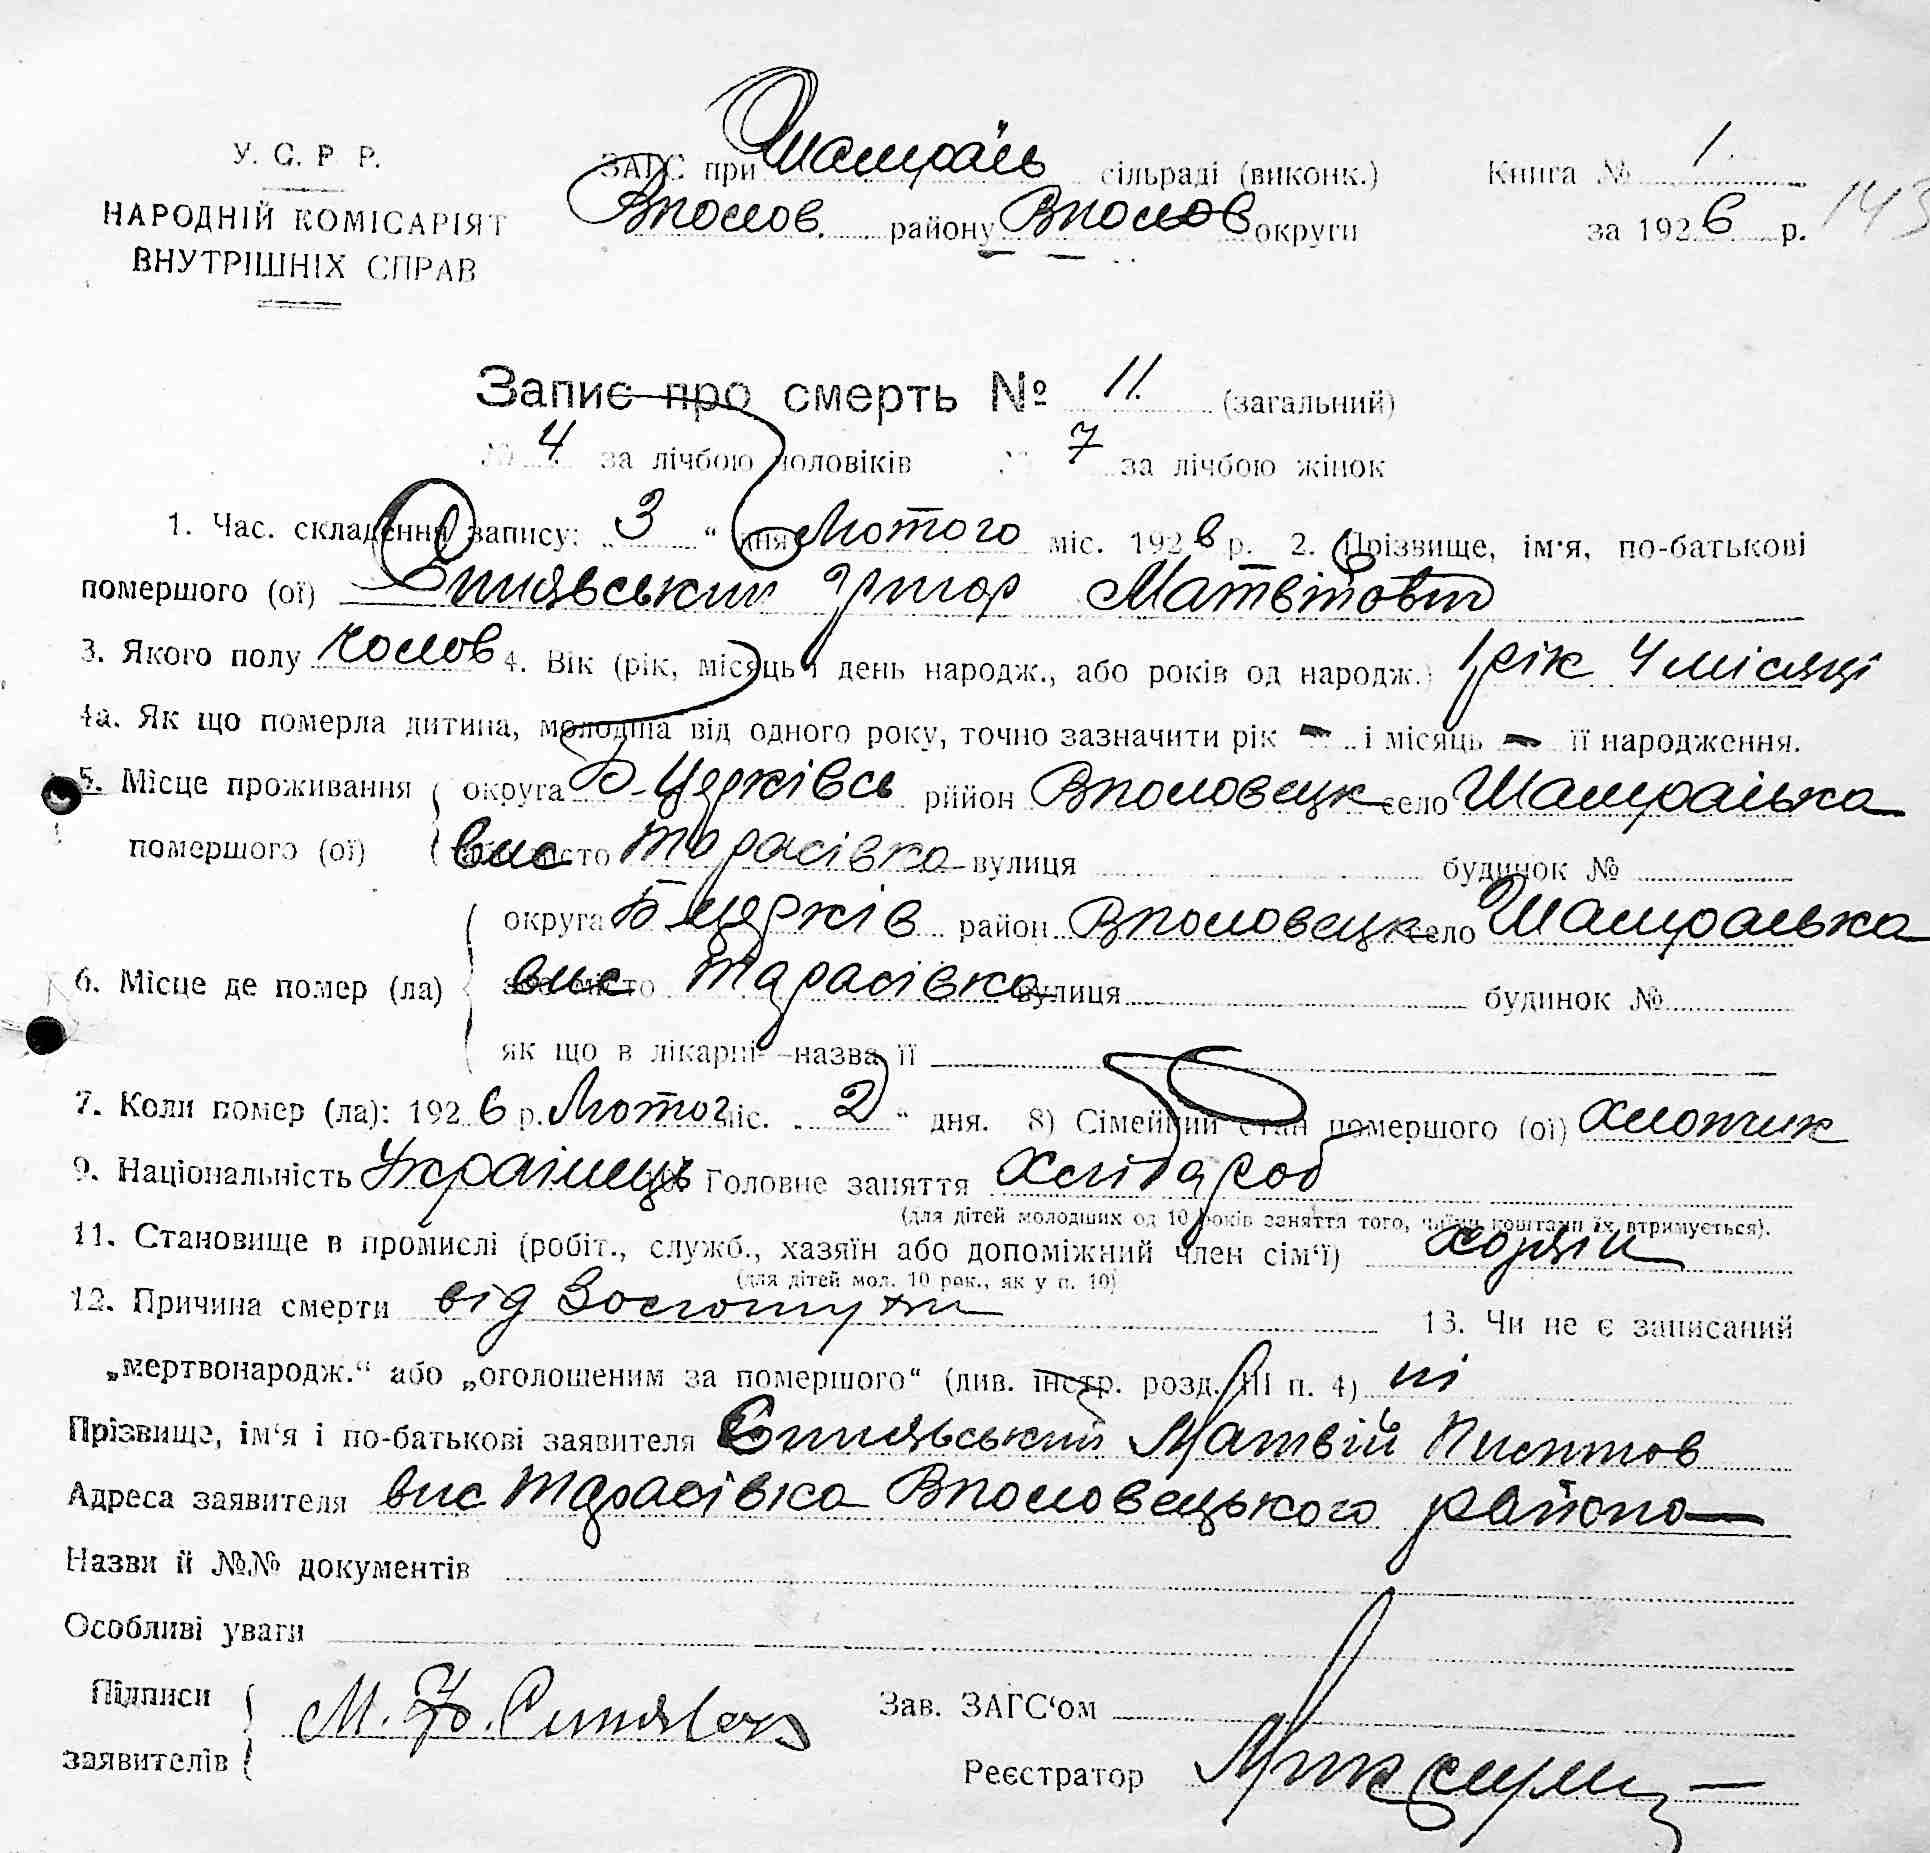 У. С. Р. Р.
НАРОДНІЙ КОМІСАРІЯТ
ВНУТРІШНІХ СПРАВ
ЗАГС при Шамраїв сільраді (виконк.) Книга № 1
Вполов. району Вполов округи за 1926 р. 143
Запис про смерть № 11. (загальний)
№ 4 за лічбою чоловіків № 7 за лічбою жінок
1. Час. складення запису: „3“ дня Лютого міс. 1926 р. 2. Прізвище, ім'я, по-батькові
помершого (ої) Синявський Григор Матвійович
3. Якого полу чолов 4. Вік (рік, місяць і день народж., або років од народж.) 1 рік 4 місяці
4а. Як що померла дитина, молодша від одного року, точно зазначити рік — і місяць — її народження.
5. Місце проживання помершого (ої) округа Б-Церківсь район Вполовецьк село Шамраївка
вис місто Тарасівка вулиця будинок №
6. Місце де помер (ла) округа Б церків район Вполовецьк село Шамраївка
вис місто Тарасівка вулиця будинок №
як що в лікарні—назва її
7. Коли помер (ла): 1926 р. Лютог міс. „2“ дня. 8) Сімейний стан помершого (ої) хлопчик
9. Національність Українець 10. Головне заняття Хлібороб
(для дітей молодших од 10 років заняття того, чиїми коштами їх втримується).
11. Становище в промислі (робіт., служб., хазяїн або допоміжний член сім'ї) хозяїн
(для дітей мол. 10 рок., як у п. 10)
12. Причина смерти від 13. Чи не є записаний
„мертвонародж.“ або „оголошеним за помершого“ (див. інстр. розд. III п. 4) ні
Прізвище, ім'я і по-батькові заявителя Синявський Матвій
Адреса заявителя вис Тарасівка Вполовецького району
Назви й №№ документів
Особливі уваги
Підписи заявителів М. Синявськ
Зав. ЗАГС'ом
Реєстратор